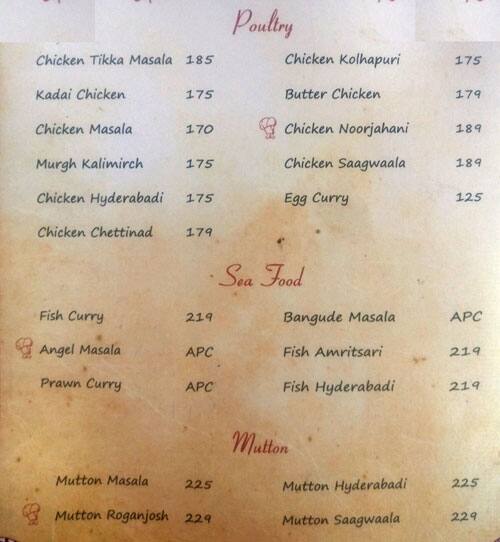 Poultry
Chicken Tikka Masala 185 Chicken Kolhapuri 175
Kadai Chicken 175 Butter Chicken 179
Chicken Masala 170 Chicken Noorjahani 189
Murgh Kalimirch 175 Chicken Saagwaala 189
Chicken Hyderabadi 175 Egg Curry 125
Chicken Chettinad 179
Sea Food
Fish Curry 219 Bangude Masala APC
Angel Masala APC Fish Amritsari 219
Prawn Curry APC Fish Hyderabadi 219
Mutton
Mutton Masala 225 Mutton Hyderabadi 225
Mutton Roganjosh 229 Mutton Saagwaala 229